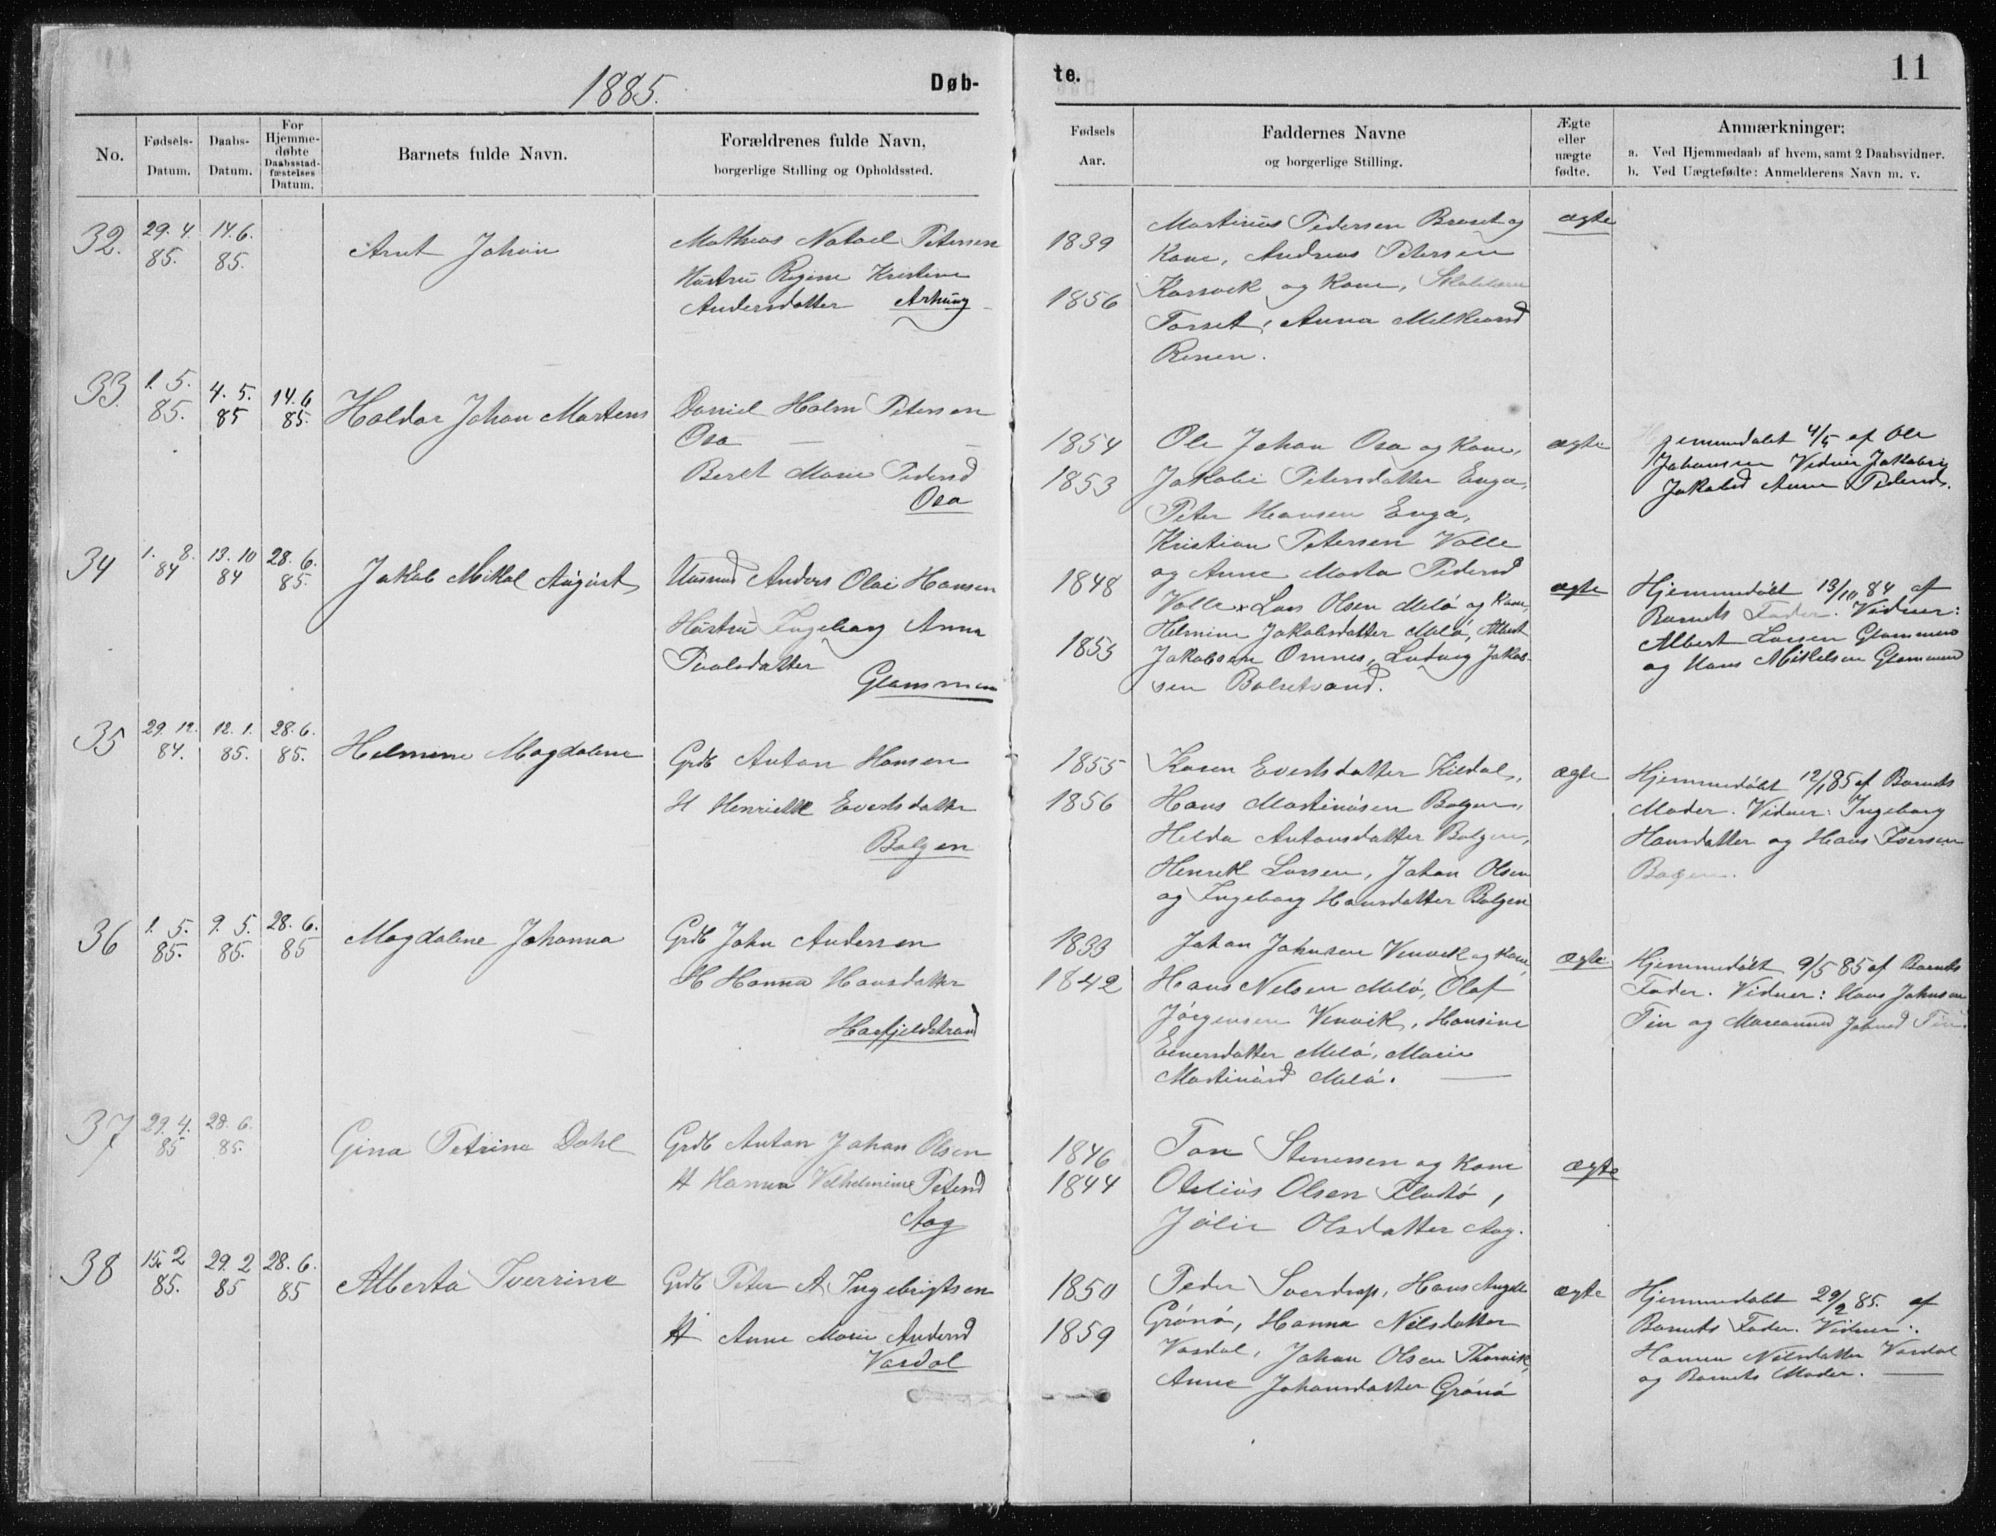 1885.
Døb-
No.
Fødsels-
Datum.
Daabs-
Datum.
For
Hjemme-
døbte
Daabsstad-
fæstelses
Datum.
Barnets fulde Navn.
Forældrenes fulde Navn,
borgerlige Stilling og Opholdssted.
32.
29. 4.
85.
14. 6.
85.
Arnt Johan
Mathias Natael Petersen
Hustru Regine Kristine
Andersdatter
33.
1. 5.
85.
4. 5.
85
14. 6
85.
Haldor Johan Martens
Daniel Holm Petersen
Osa
Beret Marie Pedersd
Osa
34
1. 8.
84
13. 10
84
28. 6.
85.
Jakob Mikal August
Anders Olai Hansen
Hustru Ingeborg Anna
Paalsdatter
Glammen
35
29. 12.
84.
12. 1.
85.
28. 6.
85.
Helmine Magdalene
Grdb Anton Hansen
H Henriette Evertsdatter
Bolgen
36
1. 5.
85.
9. 5.
85.
28. 6.
85
Magdalene Johanna
Grdb John Andersen
H Hanna Hansdatter
Havfjeldstrand
37
29. 4.
85
28. 6.
85.
Gina Petrine Dahl
Grdb Anton Johan Olsen
H Hanna Vilhelmine Petersd
Aag
38
15. 2
85.
29. 2
85
28. 6.
85
Alberta Iverrine
Grdb Peter A Ingebrigtsen
H Anne Marie Andersd
Vasdal
te.
11
Fødsels
Aar.
Faddernes Navne
og borgerlige Stilling.
Ægte
eller
uægte
fødte.
Anmærkninger:
a. Ved Hjemmedaab af hvem, samt 2 Daabsvidner.
b. Ved Uægtefødte: Anmelderens Navn m. v.
1839
1856
Martinus Pedersen Braset og
Kone, Andreas Petersen
Korsvik og Kone,
Torset, Anna
Renen.
ægte
1854
1853
Ole Johan Osa og Kone,
Jakobi Petersdatter Enga,
Peter Hansen Enga,
Kristian Petersen Valle
og Anne Marta Pedersd
Valle
ægte
Hjemmedøbt 4/5 af Ole
Johansen Vidner
Jakobsd Anne Pedersd.
1848
1855
Lars Olsen Melø og Kone,
Helmine Jakobsdatter Melø, Albert
Jakobsen Omnes, Ludvig Jakob-
sen Bolsetvand.
ægte
Hjemmedøbt 13/10 84 af
Barnets Fader. Vidner:
Albert Larsen Glammen
og Hans Mikkelsen Glommen
1855
1856
Karen Evertsdatter Kildal,
Hans Martinusen Bolgen,
Helda Antonsdatter Bolgen,
Henrik Larsen, Johan Olsen
og Ingeborg Hansdatter Bolgen
ægte
Hjemmedøbt 12/1 85 af Barnets
Moder. Vidner: Ingeborg
Hansdatter og Hans Iversen
Bolgen.
1833
1842
Johan Johnsen Venvik og Kone,
Hans Nelsen Melø, Olaf
Jørgensen Venvik, Hansine
Einersdatter Melø, Marie
Martinusd Melø.
ægte
Hjemmedøbt 9/5 85 af Barnets
Fader. Vidner: Hans Johnsen
Tin og Johnsd Tin
1846
1844
Ton Stenersen og Kone
Otelius Olsen Flatø,
Julie Olsdatter Aag.
ægte
1850
1859
Peder Sverdrup, Hans Angell
Grønø, Hanna Nelsdatter
Vasdal, Johan Olsen Thorvik,
Anne Johansdatter Grønø
ægte
Hjemmedøbt 29/2 85. af
Barnets Fader. Vidner:
Hanna Nilsdatter Vasdal
og Barnets Moder.